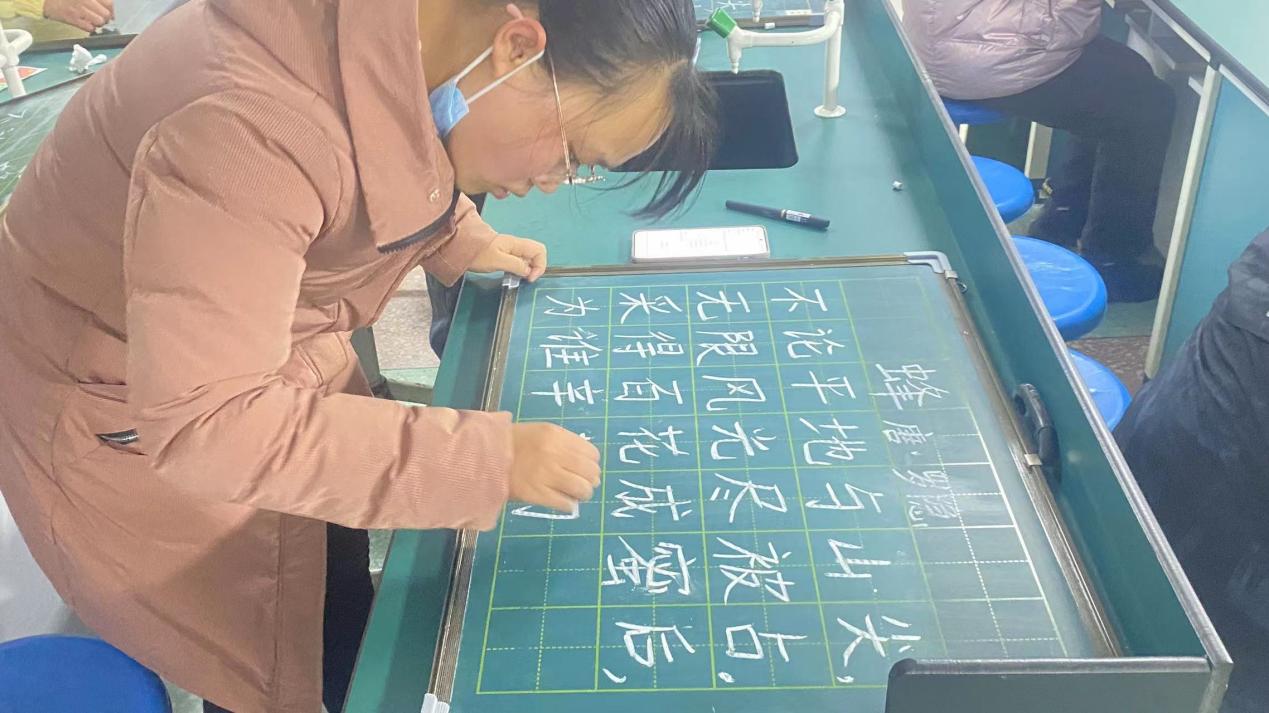 蜂
唐·罗隐
不论平地与山尖,
无限风光尽被占.
采得百花成蜜后,
为谁辛